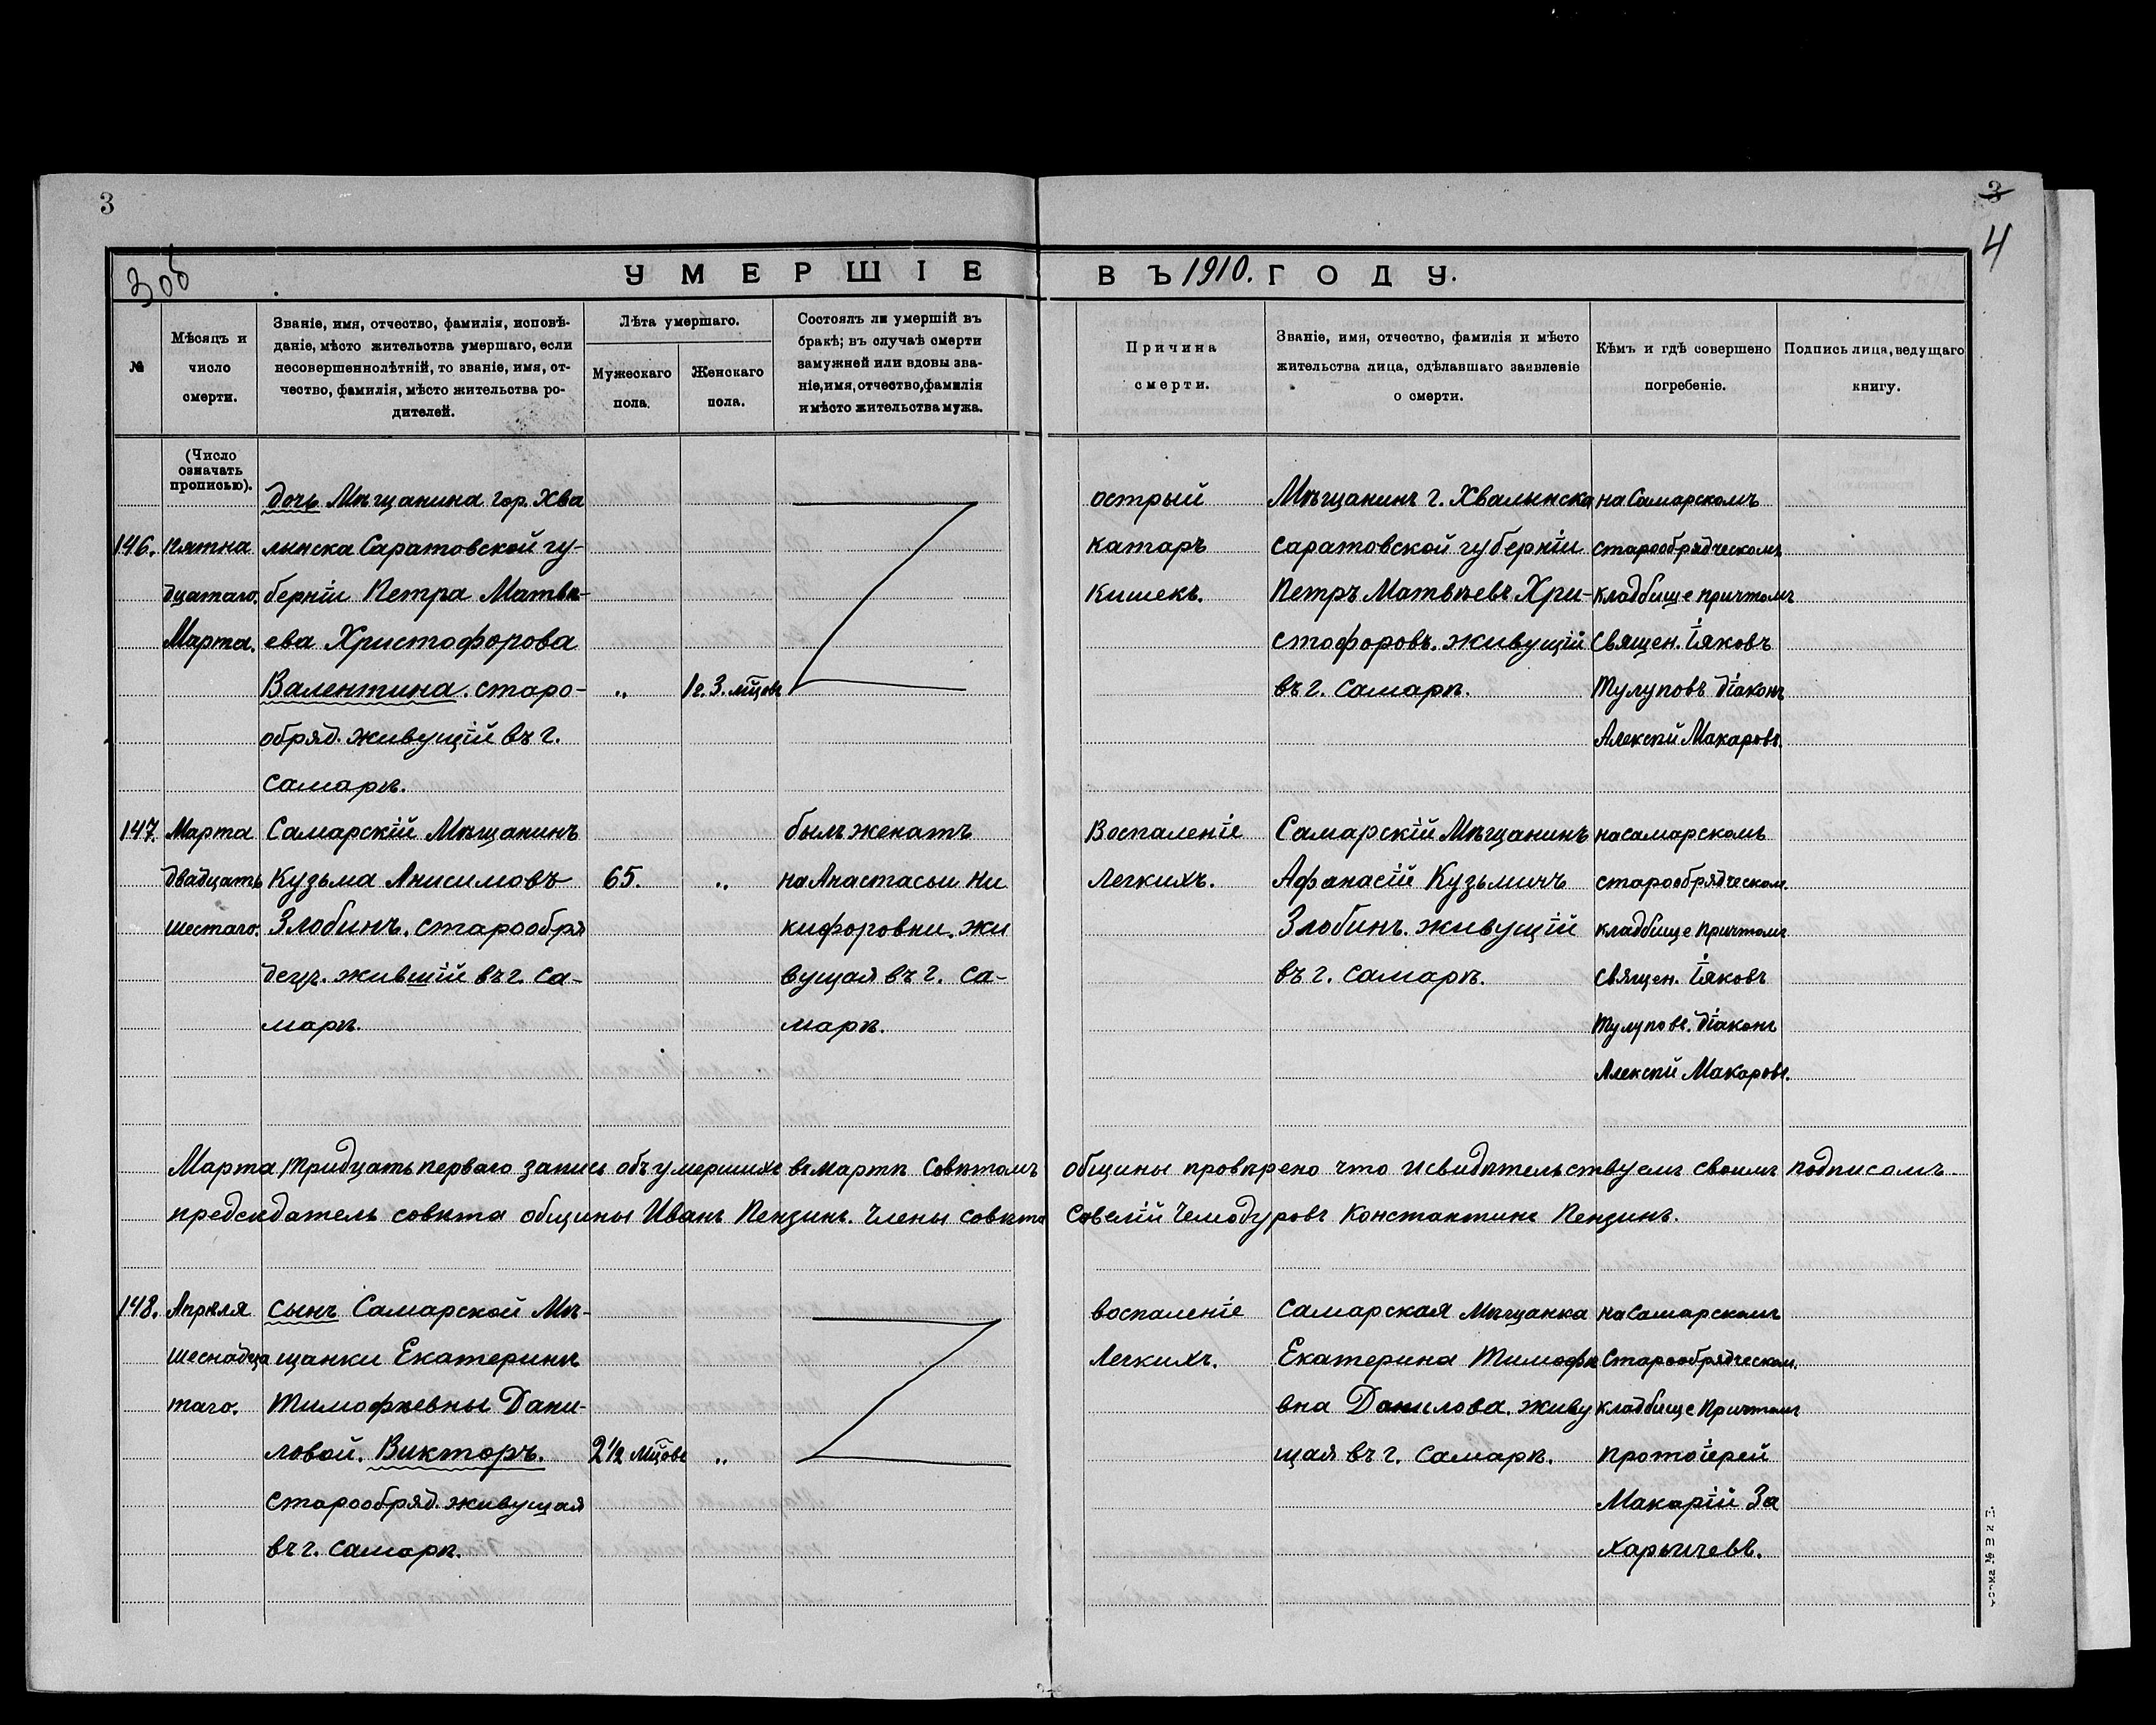 3
3
4
3об
УМЕРШІЕ ВЪ 1910. ГОДУ.
№
Мѣсяцъ и число смерти.
Званіе, имя, отчество, фамилія, исповѣ-
даніе, мѣсто жительства умершаго, если
несовершеннолѣтній, то званіе, имя, от-
чество, фамилія, мѣсто жительства ро-
дителей.
Лѣта умершаго.
Мужескаго пола.
Женскаго пола.
Состоялъ ли умершій въ
бракѣ; въ случаѣ смерти
замужней или вдовы зва-
ніе, имя, отчество, фамилія
и мѣсто жительства мужа.
Причина
смерти.
Званіе, имя, отчество, фамилія и мѣсто
жительства лица, сдѣлавшаго заявленіе
о смерти.
Кѣмъ и гдѣ совершено
погребеніе.
Подпись лица, ведущаго
книгу.
(Число
означать
прописью).
146.
Пятна
дцатаго.
Марта.
дочь Мѣщанина гор. Хва
лынска Саратовской гу-
берніи Петра Матвѣ-
ева Христофорова
Валентина. старо-
обряд. живущій въ г.
Самарѣ.
„
1 г. 3. мц̃овъ
острый
катаръ
кишекъ.
Мѣщанинъ г. Хвалынска
Саратовской губерніи
Петръ Матвѣевъ Хри-
стофоровъ. живущій
въ г. Самарѣ.
на Самарскомъ
старообрядческомъ
кладбище причтомъ
Священ. Іяковъ
Тулуповъ діаконъ
Алексѣй Макаровъ.
147.
Марта
двадцать
шестаго.
Самарскій Мѣщанинъ
Кузьма Анисимовъ
Злобинъ. старообря
децъ. жившій въ г. Са-
марѣ.
65.
„
былъ женатъ
на Анастасьи Ни
кифоровни. жи
вущая въ г. Са-
марѣ.
Воспаленіе
Легкихъ.
Самарскій Мѣщанинъ
Афанасій Кузьмичъ
Злобинъ. живущій
въ г. Самарѣ.
на Самарскомъ
старообрядческом.
кладбище причтомъ
Священ. Іяковъ
Тулуповъ. діаконъ
Алексѣй Макаровъ.
Марта тридцать перваго запись объ умершихъ въ мартѣ Совѣтомъ общины провѣрено что и свидѣтельствуемъ своимъ подписомъ.
предсѣдатель совѣта общины Иванъ Пензинъ. Члены совѣта Савелій Чемодуровъ Константинъ Пензинъ.
148.
Апрѣля
шеснадца
таго.
сынъ Самарской Мѣ-
щанки Екатерины
Тимофѣевны Дани-
ловой. Викторъ.
Старообряд. живущая
въ г. Самарѣ.
2 1/2 мц̃овъ
„
воспаленіе
Легкихъ.
Самарская мѣщанка
Екатерина Тимофѣ
вна Данилова. живу
щая въ г. Самарѣ.
на Самарскомъ
Старообрядческом.
кладбище Причтомъ
протоіерей
Макарій За
харычевъ.